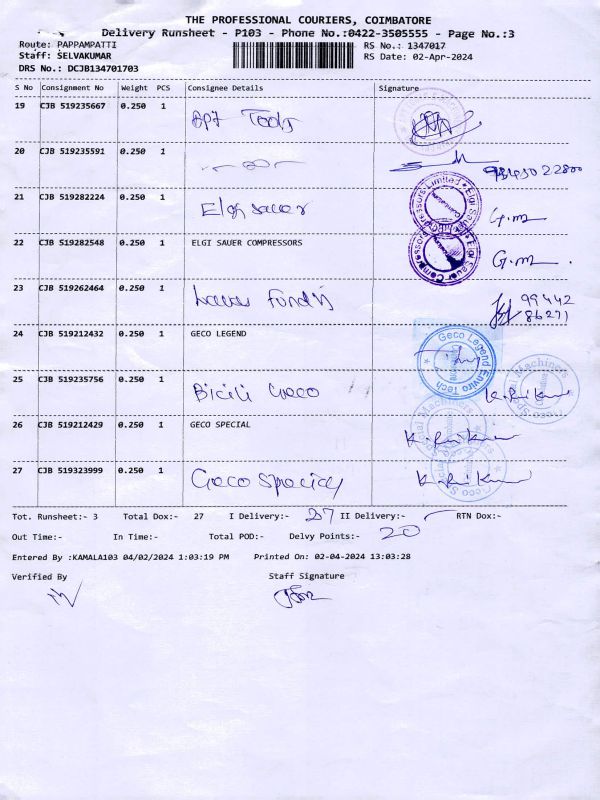 THE PROFESSIONAL COURIERS, COIMBATORE
Delivery Runsheet - P103 - Phone No.:0422-3505555 - Page No.:3
Route: PAPPAMPATTI RS No.: 1347017
Staff: SELVAKUMAR RS Date: 02-Apr-2024
DRS No.: DCJB134701703
S No Consignment No Weight PCS Consignee Details Signature
19 CJB 519235667 0.250 1 Tools
20 CJB 519235591 0.250 1
21 CJB 519282224 0.250 1 Elgi sauer G.m
22 CJB 519282548 0.250 1 ELGI SAUER COMPRESSORS G.m
23 CJB 519262464 0.250 1 99442
86271
24 CJB 519212432 0.250 1 GECO LEGEND
Geco Legend Enviro Tech
25 CJB 519235756 0.250 1 Geco
26 CJB 519212429 0.250 1 GECO SPECIAL
27 CJB 519323999 0.250 1 Geco
Tot. Runsheet:- 3 Total Dox:- 27 I Delivery:- 27 II Delivery:- RTN Dox:-
Out Time:- In Time:- Total POD:- Delvy Points:- 20
Entered By :KAMALA103 04/02/2024 1:03:19 PM Printed On: 02-04-2024 13:03:28
Verified By Staff Signature